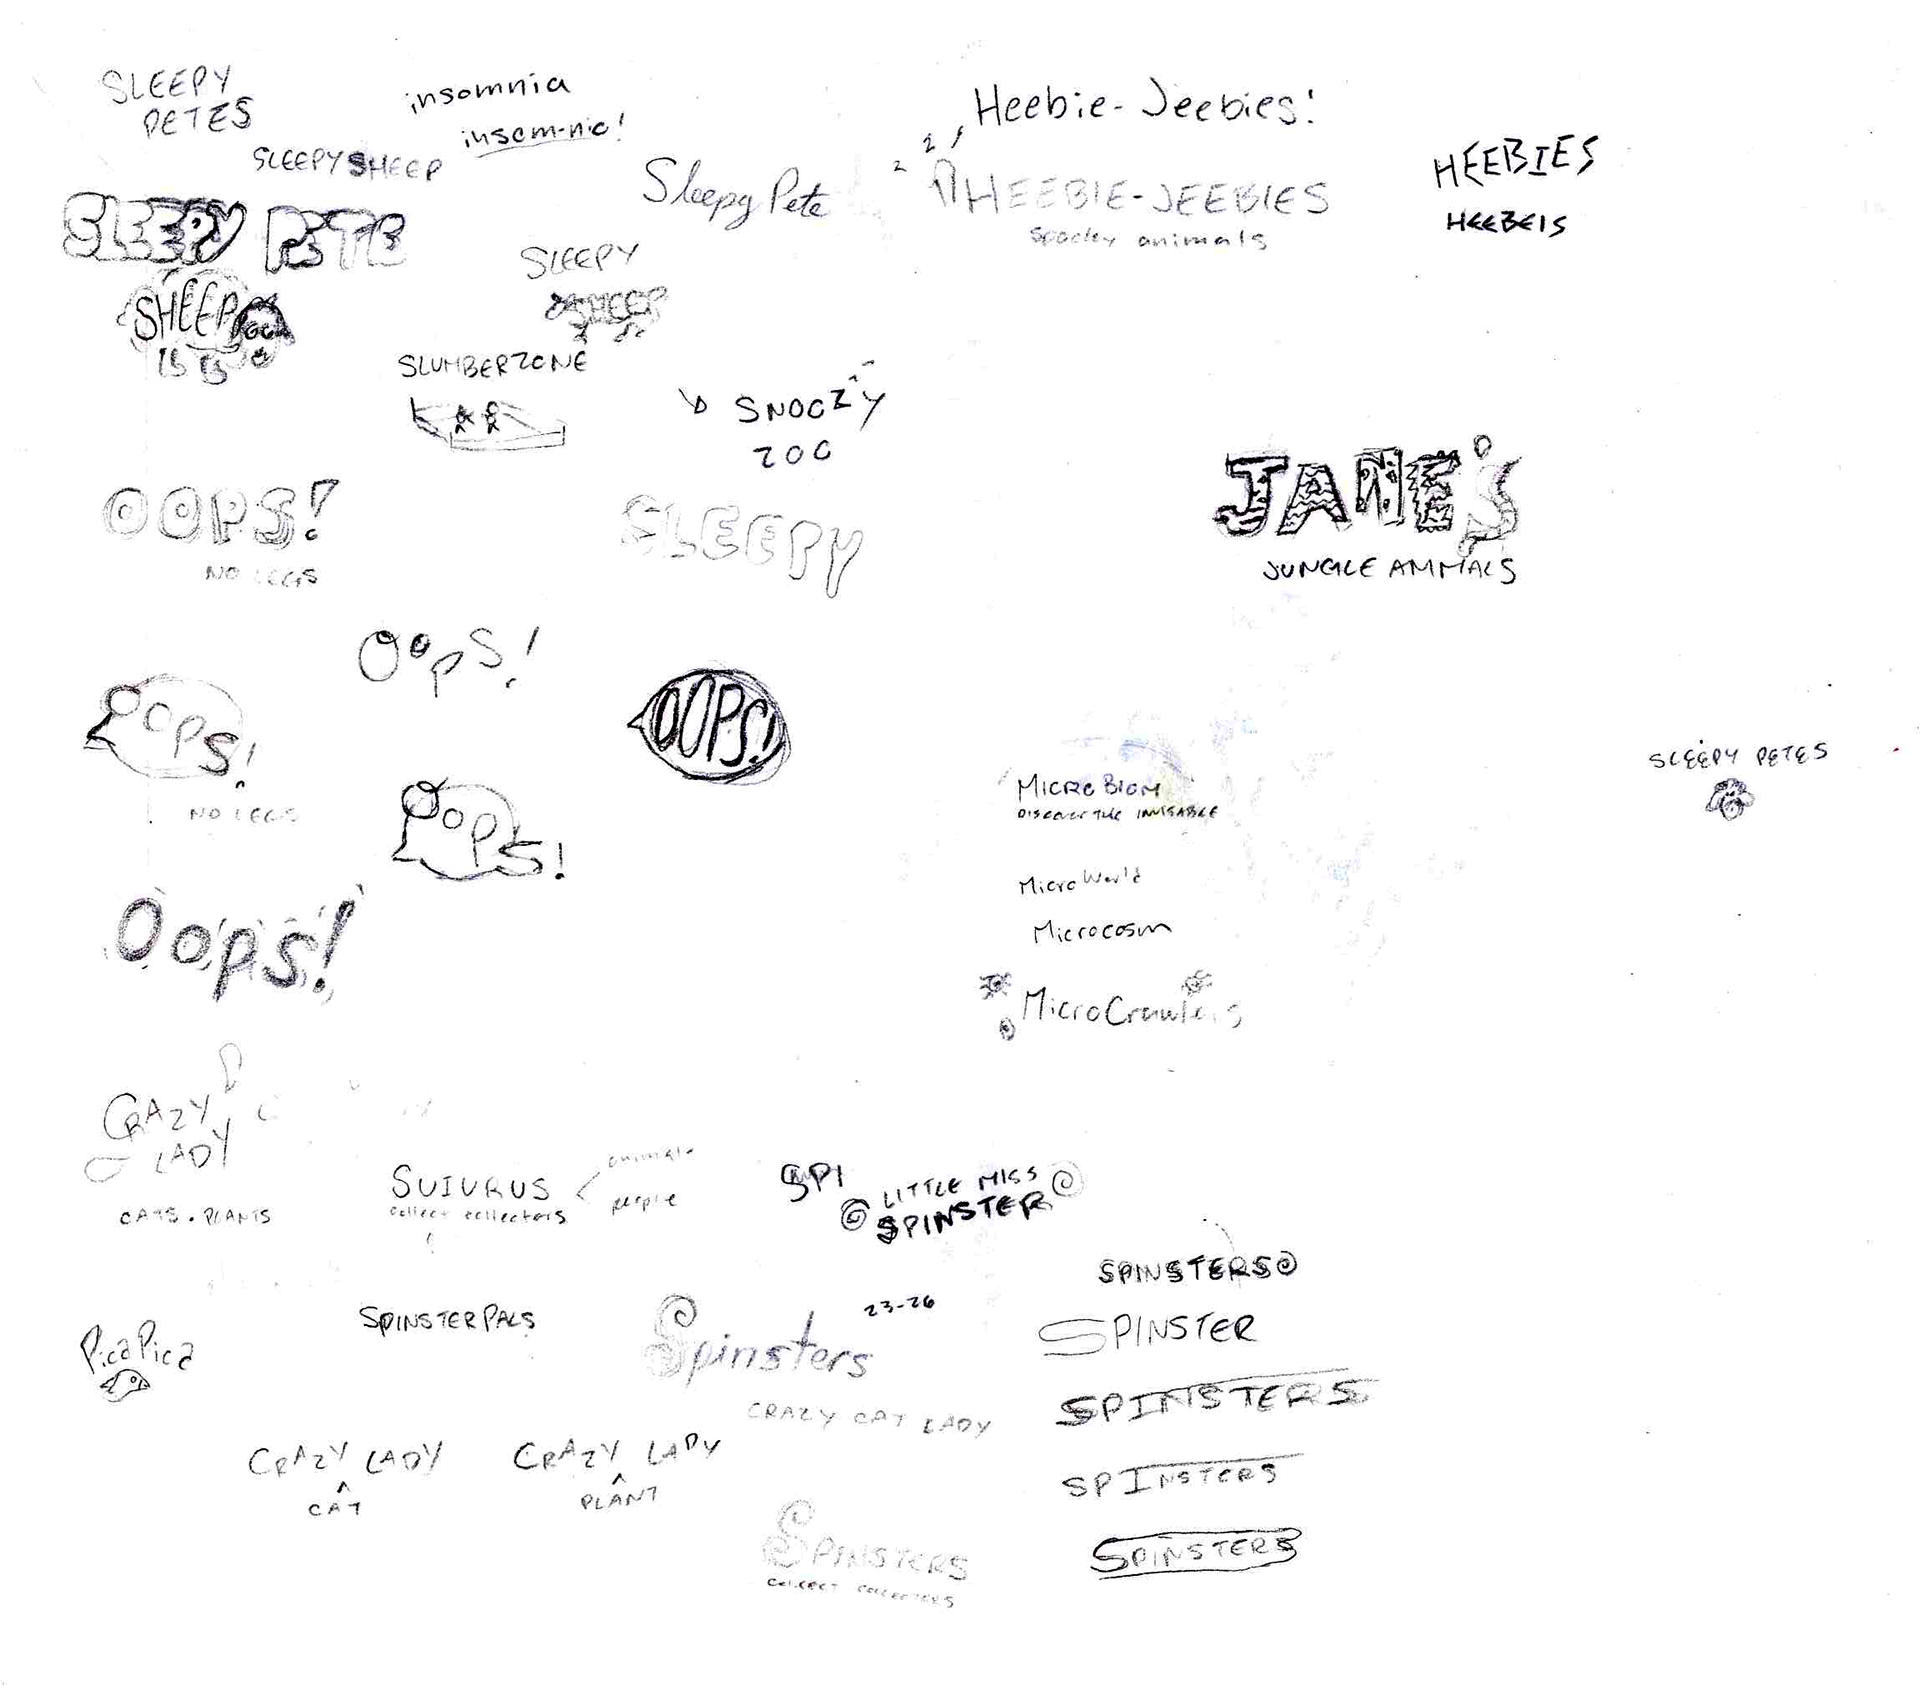 SLEEPY
PETES
insomnia
insom-nic!
SLEEPY SHEEP
Sleepy Pete
Heebie-Jeebies!
HEEBIE-JEEBIES
Spooky animals
HEEBIES
HEEBEIS
SLEEPY PETE
SHEEP
SLEEPY
SHEEP
SLUMBERZONE
SNOOZY
ZOO
OOPS!
NO LEGS
SLEEPY
JANE'S
JUNGLE ANIMALS
Oops!
OOPS!
NO LEGS
OOPS!
Oops!
Oops!
MICROBIOM
DISCOVER THE INVISABLE
MicroWorld
Microcosm
MicroCrawlers
SLEEPY PETES
CRAZY
LADY
CATS. PLANTS
SUIURUS
collect collectors
animals
people
SPI
LITTLE MISS
SPINSTER
SPINSTERS
SPINSTER
SPINSTERS
SPINSTERS
SPINSTERS
PicaPica
SPINSTERPALS
Spinsters
23-26
CRAZY CAT LADY
CRAZY LADY
^
CAT
CRAZY LADY
^
PLANT
SPINSTERS
COLLECT COLLECTORS